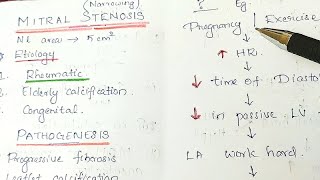 (Narrowing)
MITRAL STENOSIS
Nl area → 5 cm²
Etiology
1. Rheumatic
2. Elderly calcification.
Congenital.
PATHOGENESIS
Progressive fibrosis
Leaflet calcification
? Eg.
Pregnancy Exericise
↓
↑ HR.
↓
↓ time of Diasto
↓
↓ in passive LV
↓
LA work hard.
↓